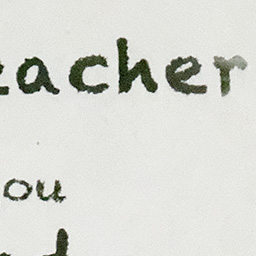 eacher
ou